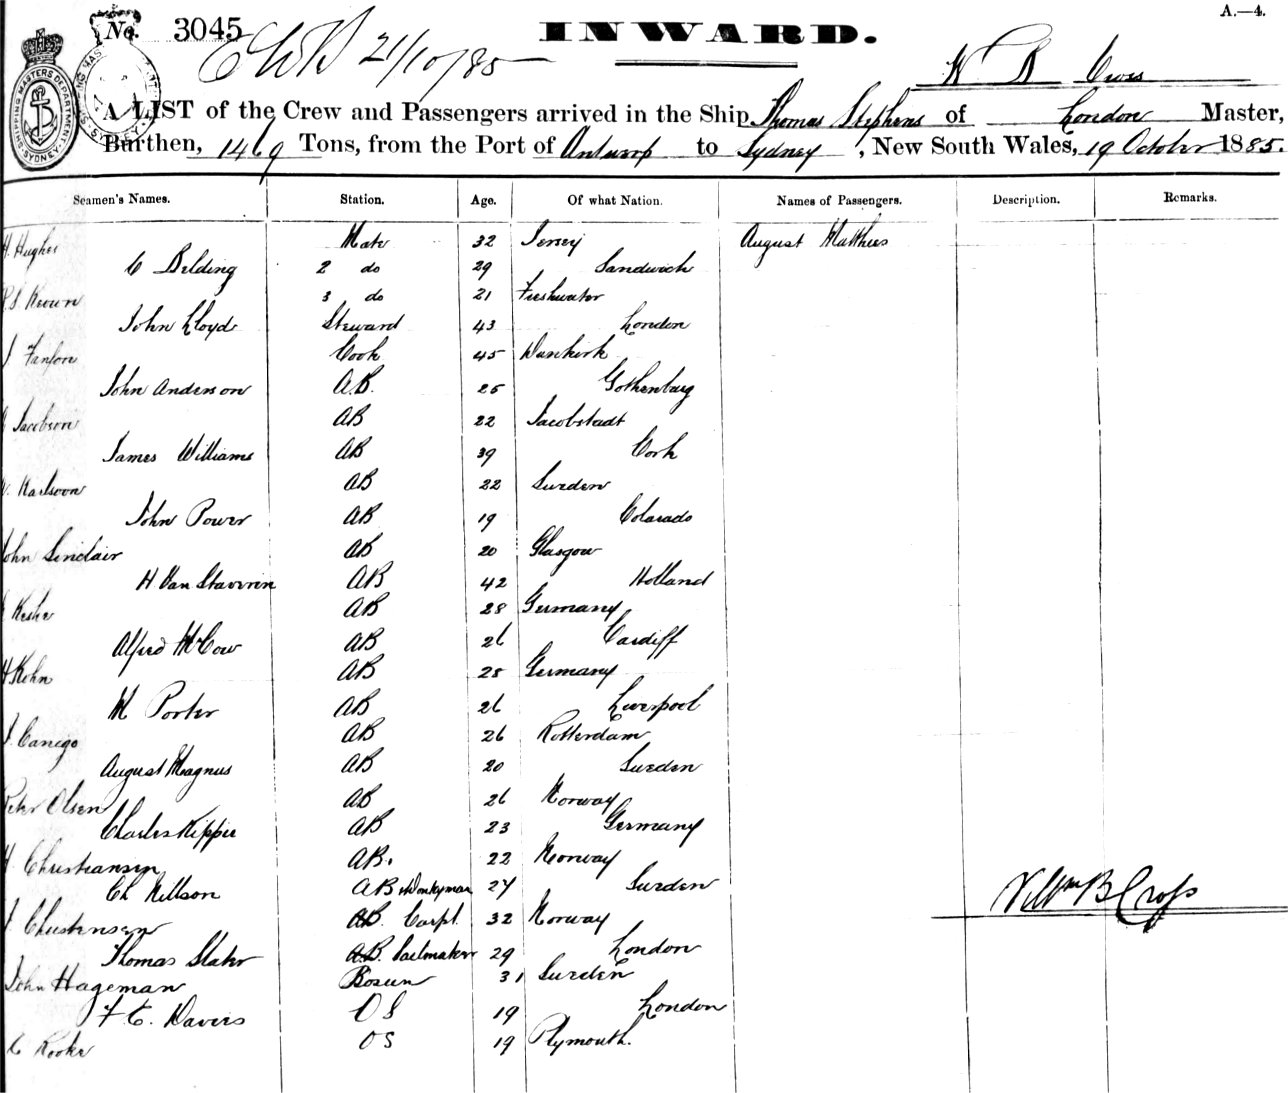 No. 3045
INWARD.
A.—4.
21/10/85
W B Cross
SHIPPING MASTERS DEPARTMENT SYDNEY
A LIST of the Crew and Passengers arrived in the Ship Thomas Stephens of London Master,
Burthen, 1469 Tons, from the Port of Antwerp to Sydney, New South Wales, 19 October 1885.
Seamen's Names. Station. Age. Of what Nation. Names of Passengers. Description. Remarks.
H. Hughes Mate 32 Jersey August Matthies
C Belding 2 do 29 Sandwich
3 do 21 Freshwater
John Lloyd Steward 43 London
Cook 45 Dunkirk
John Anderson A.B. 25 Gothenburg
Jacobson AB 22 Jacobstadt
James Williams AB 39 Cork
Karlsoon AB 22 Sweden
John Power AB 19 Colarado
John Sinclair AB 20 Glasgow
H Van Staverin AB 42 Holland
AB 28 Germany
Alfred McCow AB 26 Cardiff
H Kohn AB 25 Germany
W Porter AB 26 Liverpool
J. Canego AB 26 Rotterdam
August Magnus AB 20 Sweden
Peter Olsen AB 26 Norway
Charles Kipper AB 23 Germany
H Christiansen AB. 22 Norway
Ch Nillson AB & Donkyman 27 Sweden
J. Christensen AB. Carpt. 32 Norway
Wm B Cross
Thomas Slater A.B. Sailmaker 29 London
John Hageman Bosun 31 Sweden
F C. Davies OS 19 London
C Rooke OS 19 Plymouth.